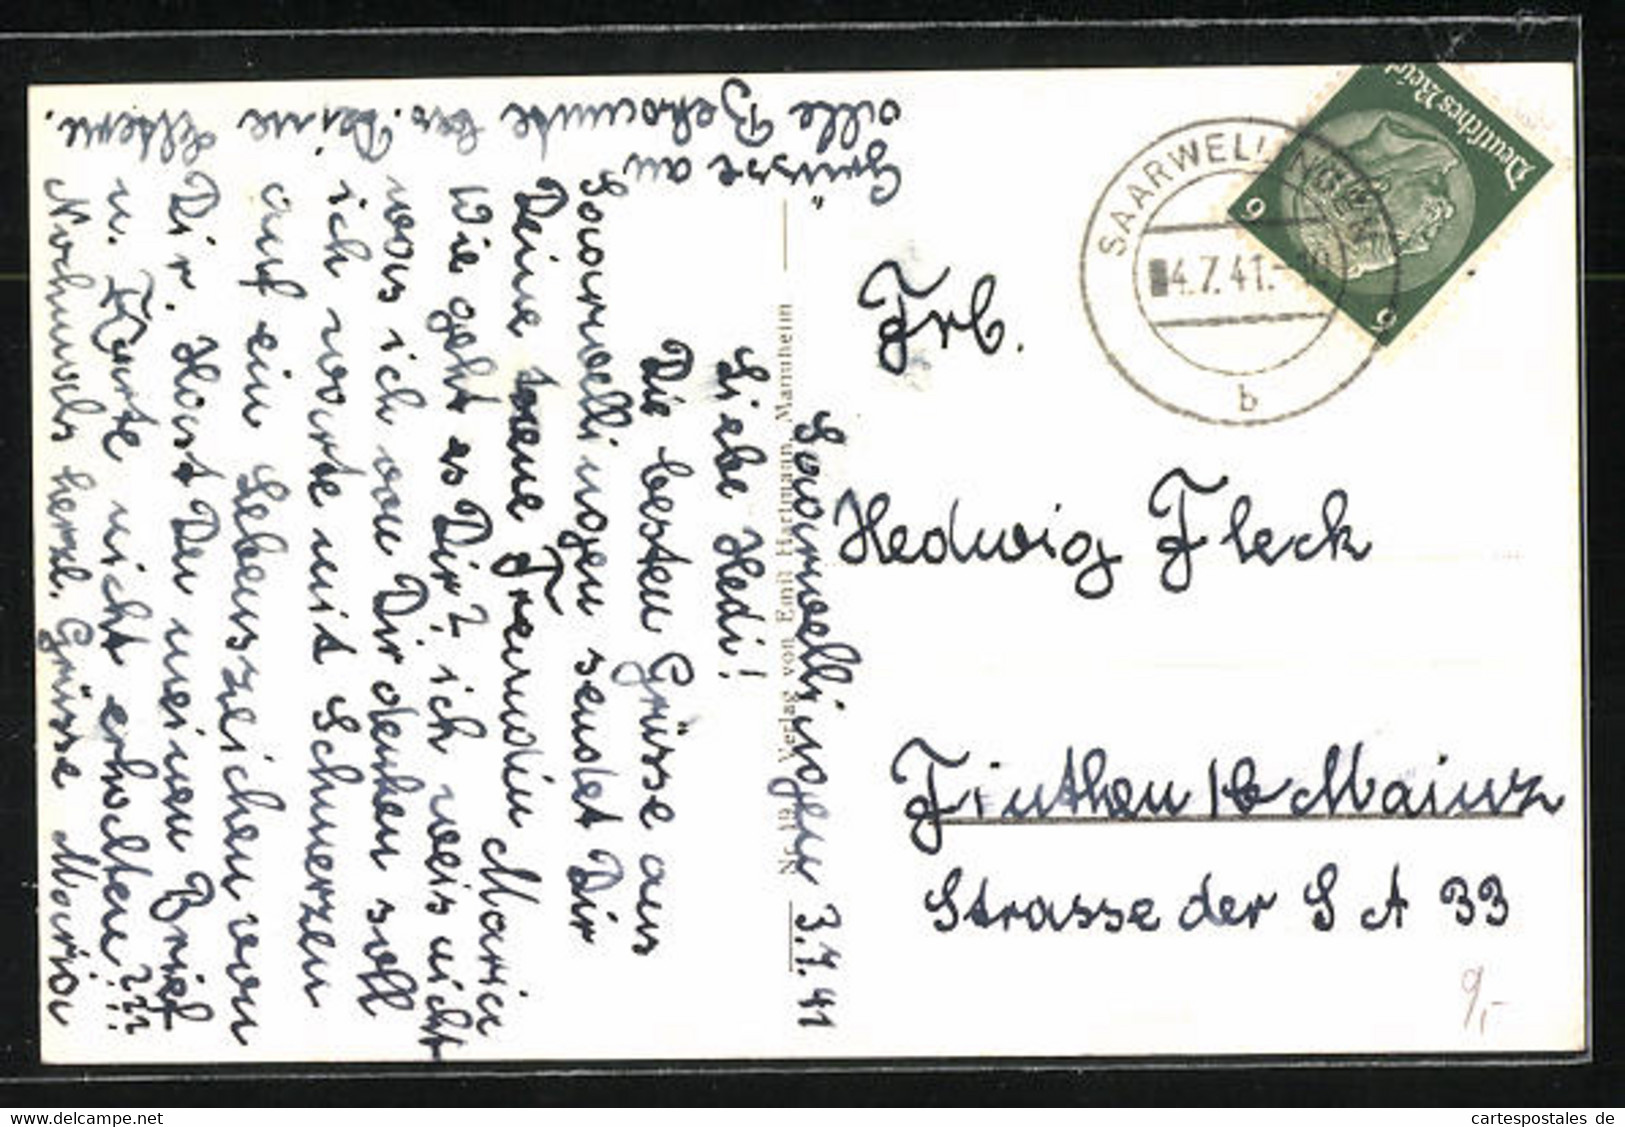 Saarwellingen 3.7.41
Liebe Hedi!
Die besten Grüsse aus
Saarwellingen sendet Dir
Deine treue Freundin Maria
Wie geht es Dir? ich weis nicht
was ich von Dir denken soll
ich warte mit Schmerzen
auf ein Lebenszeichen von
Dir. Hast Du meinen Brief
u. Karte nicht erhalten???
Nochmals herzl. Grüsse Maria
Grüsse an
alle Bekannte bes. Deine Eltern.
Nr. 19 Verlag von Emil Hartmann, Mannheim
Deutsches Reich
6
6
SAARWELLINGEN
4.7.41.-10
b
Frl.
Hedwig Fleck
Finthen / b Mainz
Strasse der S A 33
9,-
cartespostales de